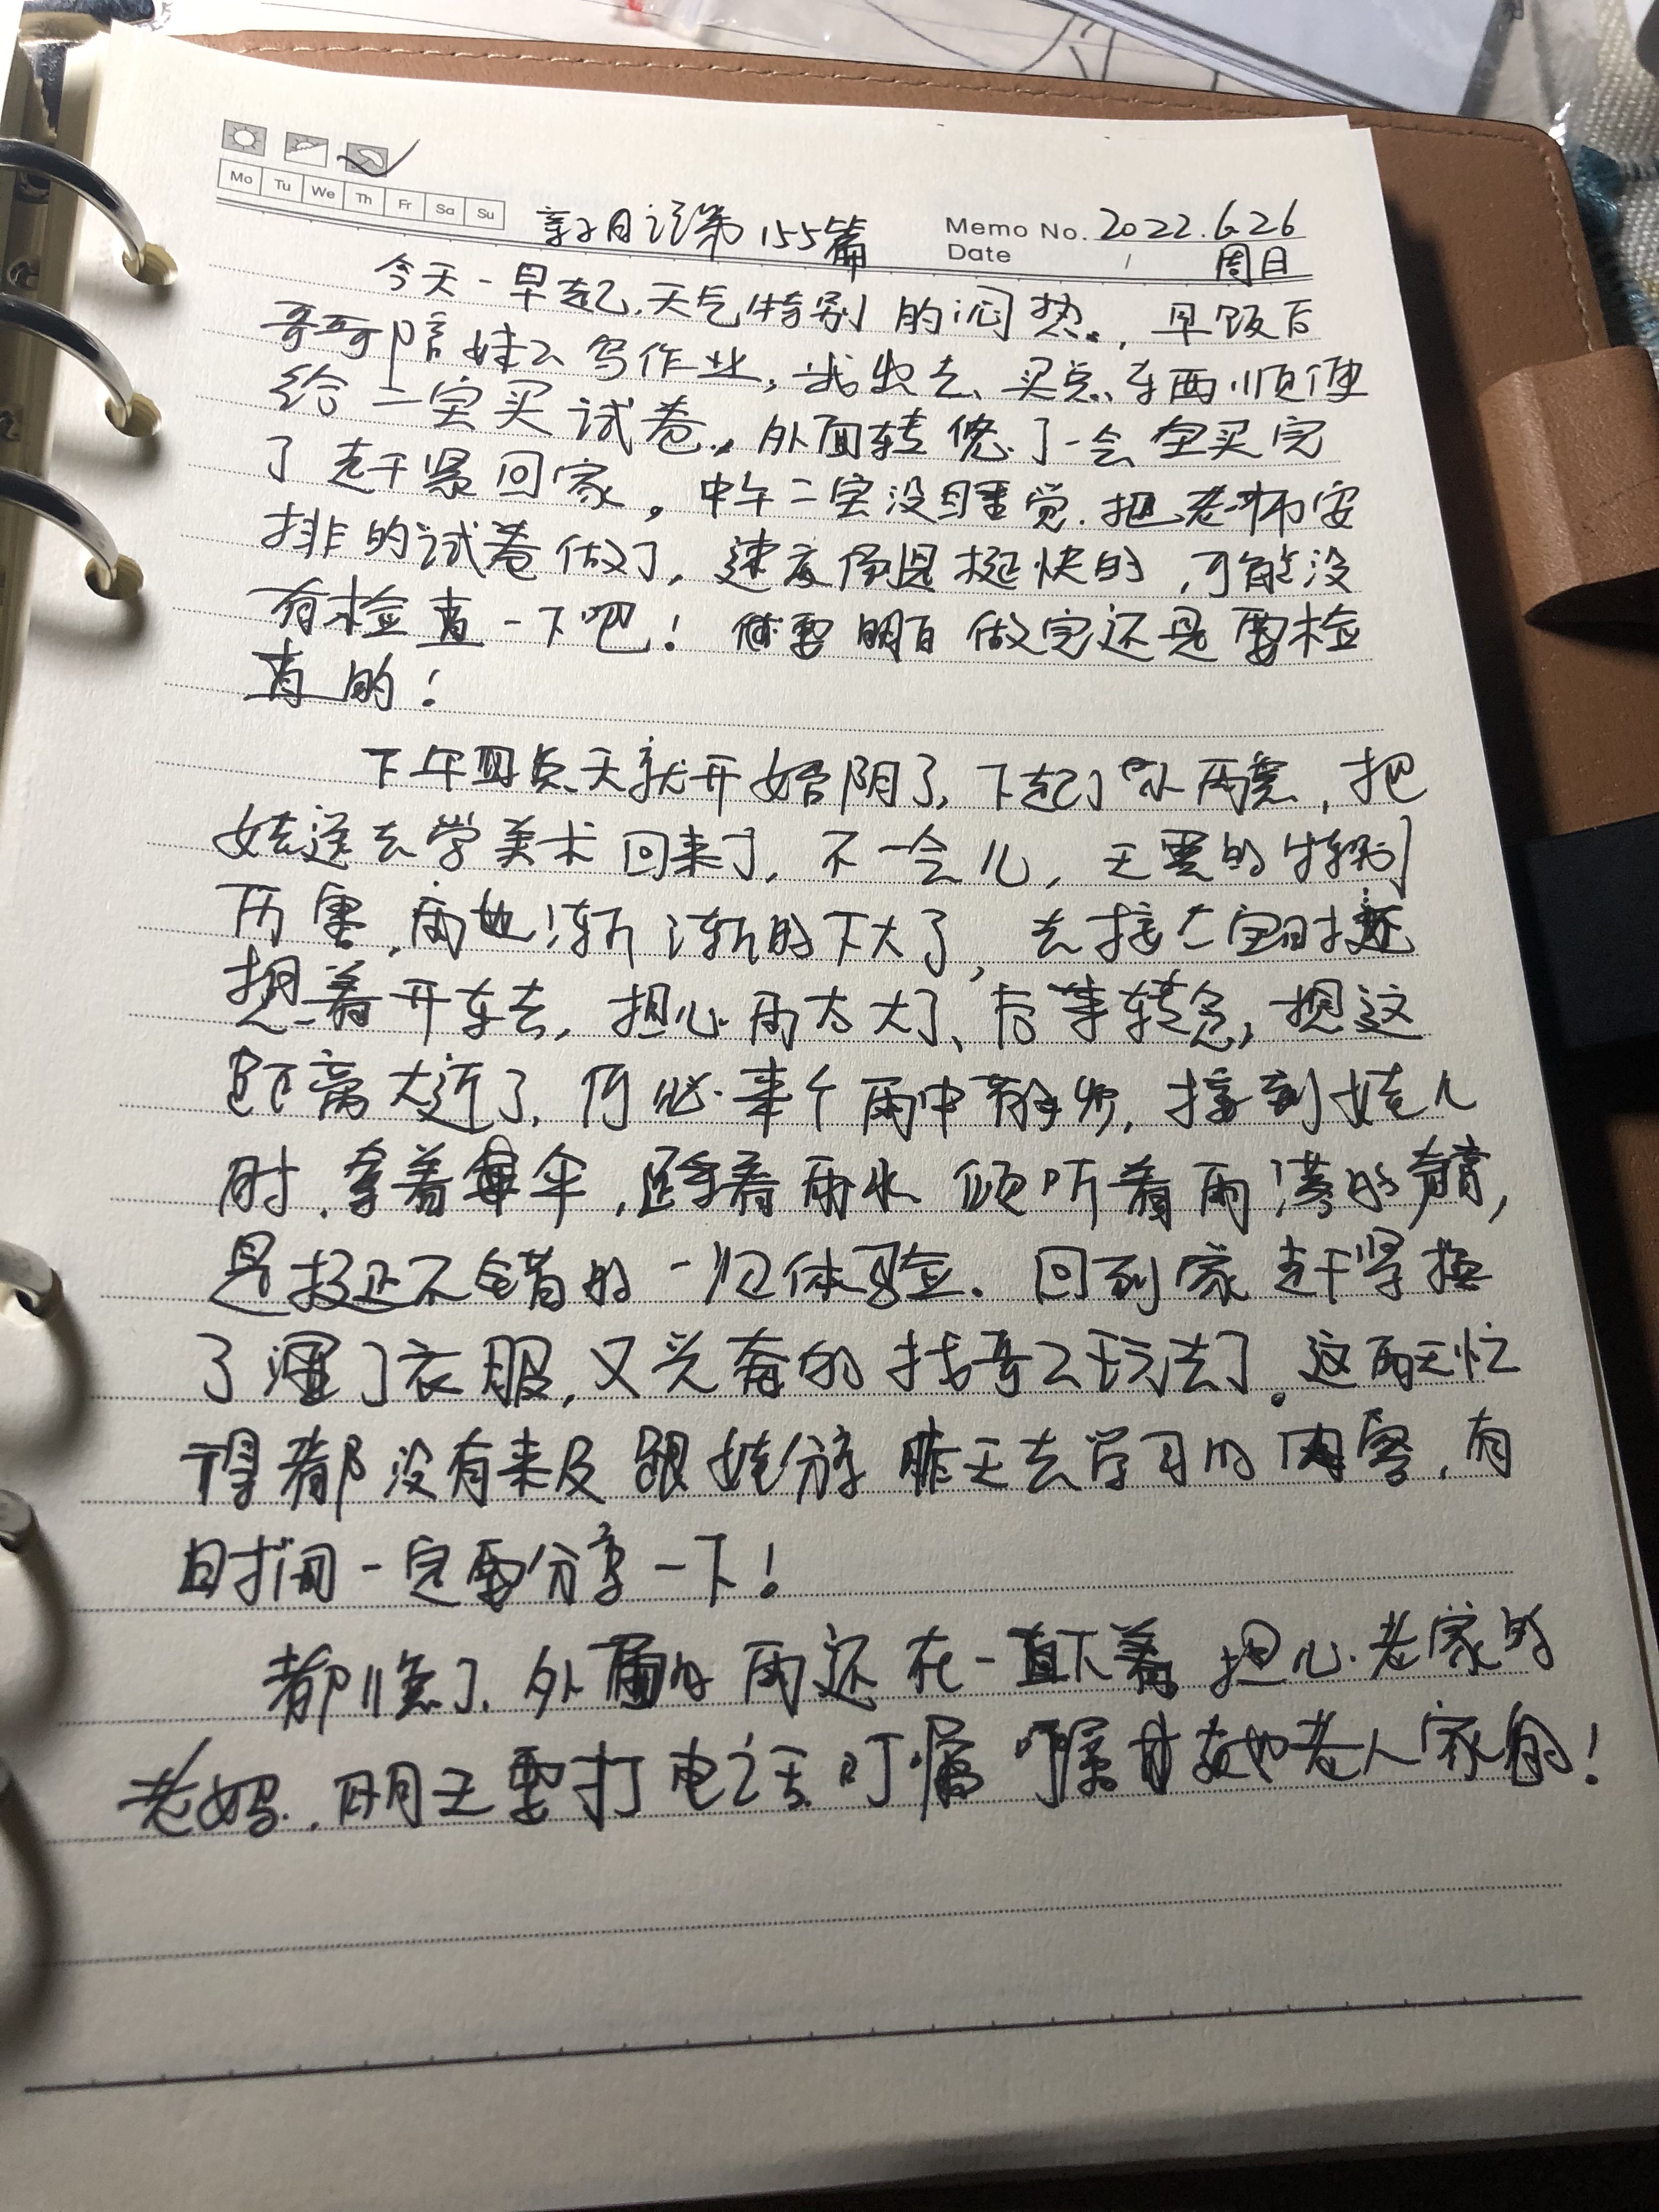 Mo Tu We Th Fr Sa Su
亲子日记第155篇
Memo No. 2022.6.26
Date / 周日
今天一早起,天气特别的闷热。,早饭后
哥哥陪妹么写作业,我出去买点东西顺便
给二宝买试卷,外面转悠了一会全买完
了赶紧回家。中午二宝没睡觉.把老师安
排的试卷做了,速度倒是挺快的,可能没
有检查一下吧!做完还是要检
查的!
下午四点天就开始阴了,下起了小雨,把
娃送去学美术回来了,不一会儿,天黑的特别
厉害,雨也渐渐的下大了,去接二宝时还
想着开车去,担心雨太大了、后来转念,想这
距离太近了,何必.来个雨中散步,接到娃儿
时,拿着伞,踩着雨水倾听着雨滴的声音,
是挺不错的一次体验.回到家赶紧换
了湿了衣服,又兴奋的找哥么玩去了。这两天忙
得都没有来及跟娃分享昨天去学习的内容,有
时间一定要分享一下!
都睡了,外面的雨还在一直下着担心老家的
老妈.明天要打电话叮嘱老人家的!